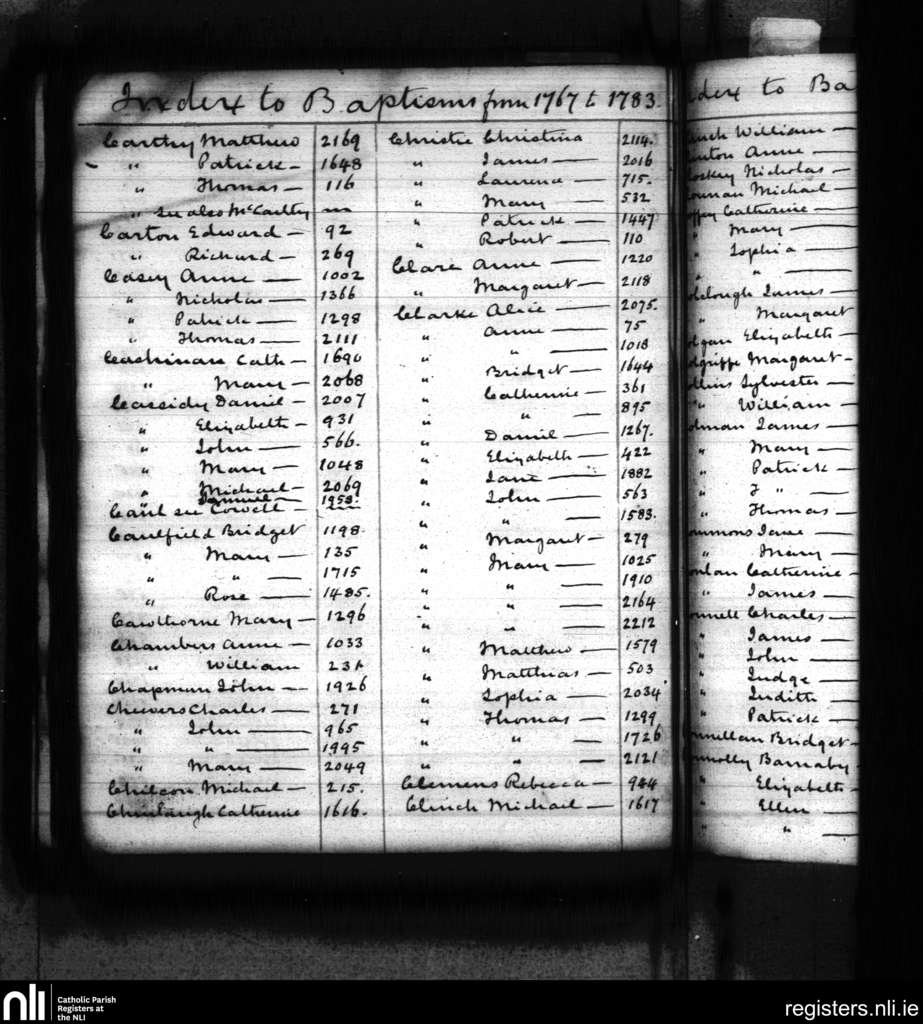 Index to Baptisms from 1767 to 1783.
Carthy Matthew 2169
" Patrick - 1648
" Thomas - 116
" See also McCarthy
Carton Edward - 92
" Richard - 269
Casey Anne - 1002
" Nicholas - 1366
" Patrick - 1298
" Thomas - 2111
Cashinan Cath - 1690
" Mary - 2068
Cassidy Daniel - 2007
" Elizabeth - 931
" John - 566.
" Mary - 1048
" Michael - 2069
" Samuel - 1958.
Caul see Cowell -
Caulfield Bridget 1198
" Mary - 135
" " - 1715
" Rose - 1485.
Cawthorne Mary - 1296
Chambers Anne - 1033
" William
Chapman John - 1926
Chevers Charles - 271
" John - 965
" " - 1995
" Mary - 2049
Chilcon Michael - 215.
Catherine 1616.
Christie Christina 2114.
" James - 2016
" Laurence - 715.
" Mary - 532
" Patrick - 1447
" Robert - 110
Clare Anne - 1220
" Margaret - 2118
Clarke Alice - 2075.
" Anne - 75
" " - 1018
" Bridget - 1644
" Catherine - 361
" " - 895
" Daniel - 1267.
" Elizabeth - 422
" Jane - 1882
" John - 563
" " - 1583.
" Margaret - 279
" Mary - 1025
" " - 1910
" " - 2164
" " - 2212
" Matthew - 1579
" Matthias - 503
" Sophia - 2034
" Thomas - 1299
" " - 1726
" " - 2121
Clemens Rebecca - 944
Clinch Michael - 1617
dex to Ba
nch William -
nton Anne -
oskey Nicholas -
Michael -
Catherine -
" Mary -
" Sophia -
" " -
clough James -
" Margaret
lgan Elizabeth -
Margaret -
llins Sylvester -
" William -
lman James -
" Mary -
" Patrick -
" J " -
" Thomas -
mmons Jane -
" Mary -
nlan Catherine -
" James -
nnell Charles -
" James -
" John -
" Judge -
" Judith -
" Patrick -
nnellan Bridget -
nnolly Barnaby -
" Elizabeth -
" Ellen -
" " -
nli Catholic Parish
Registers at
the NLI
registers.nli.ie